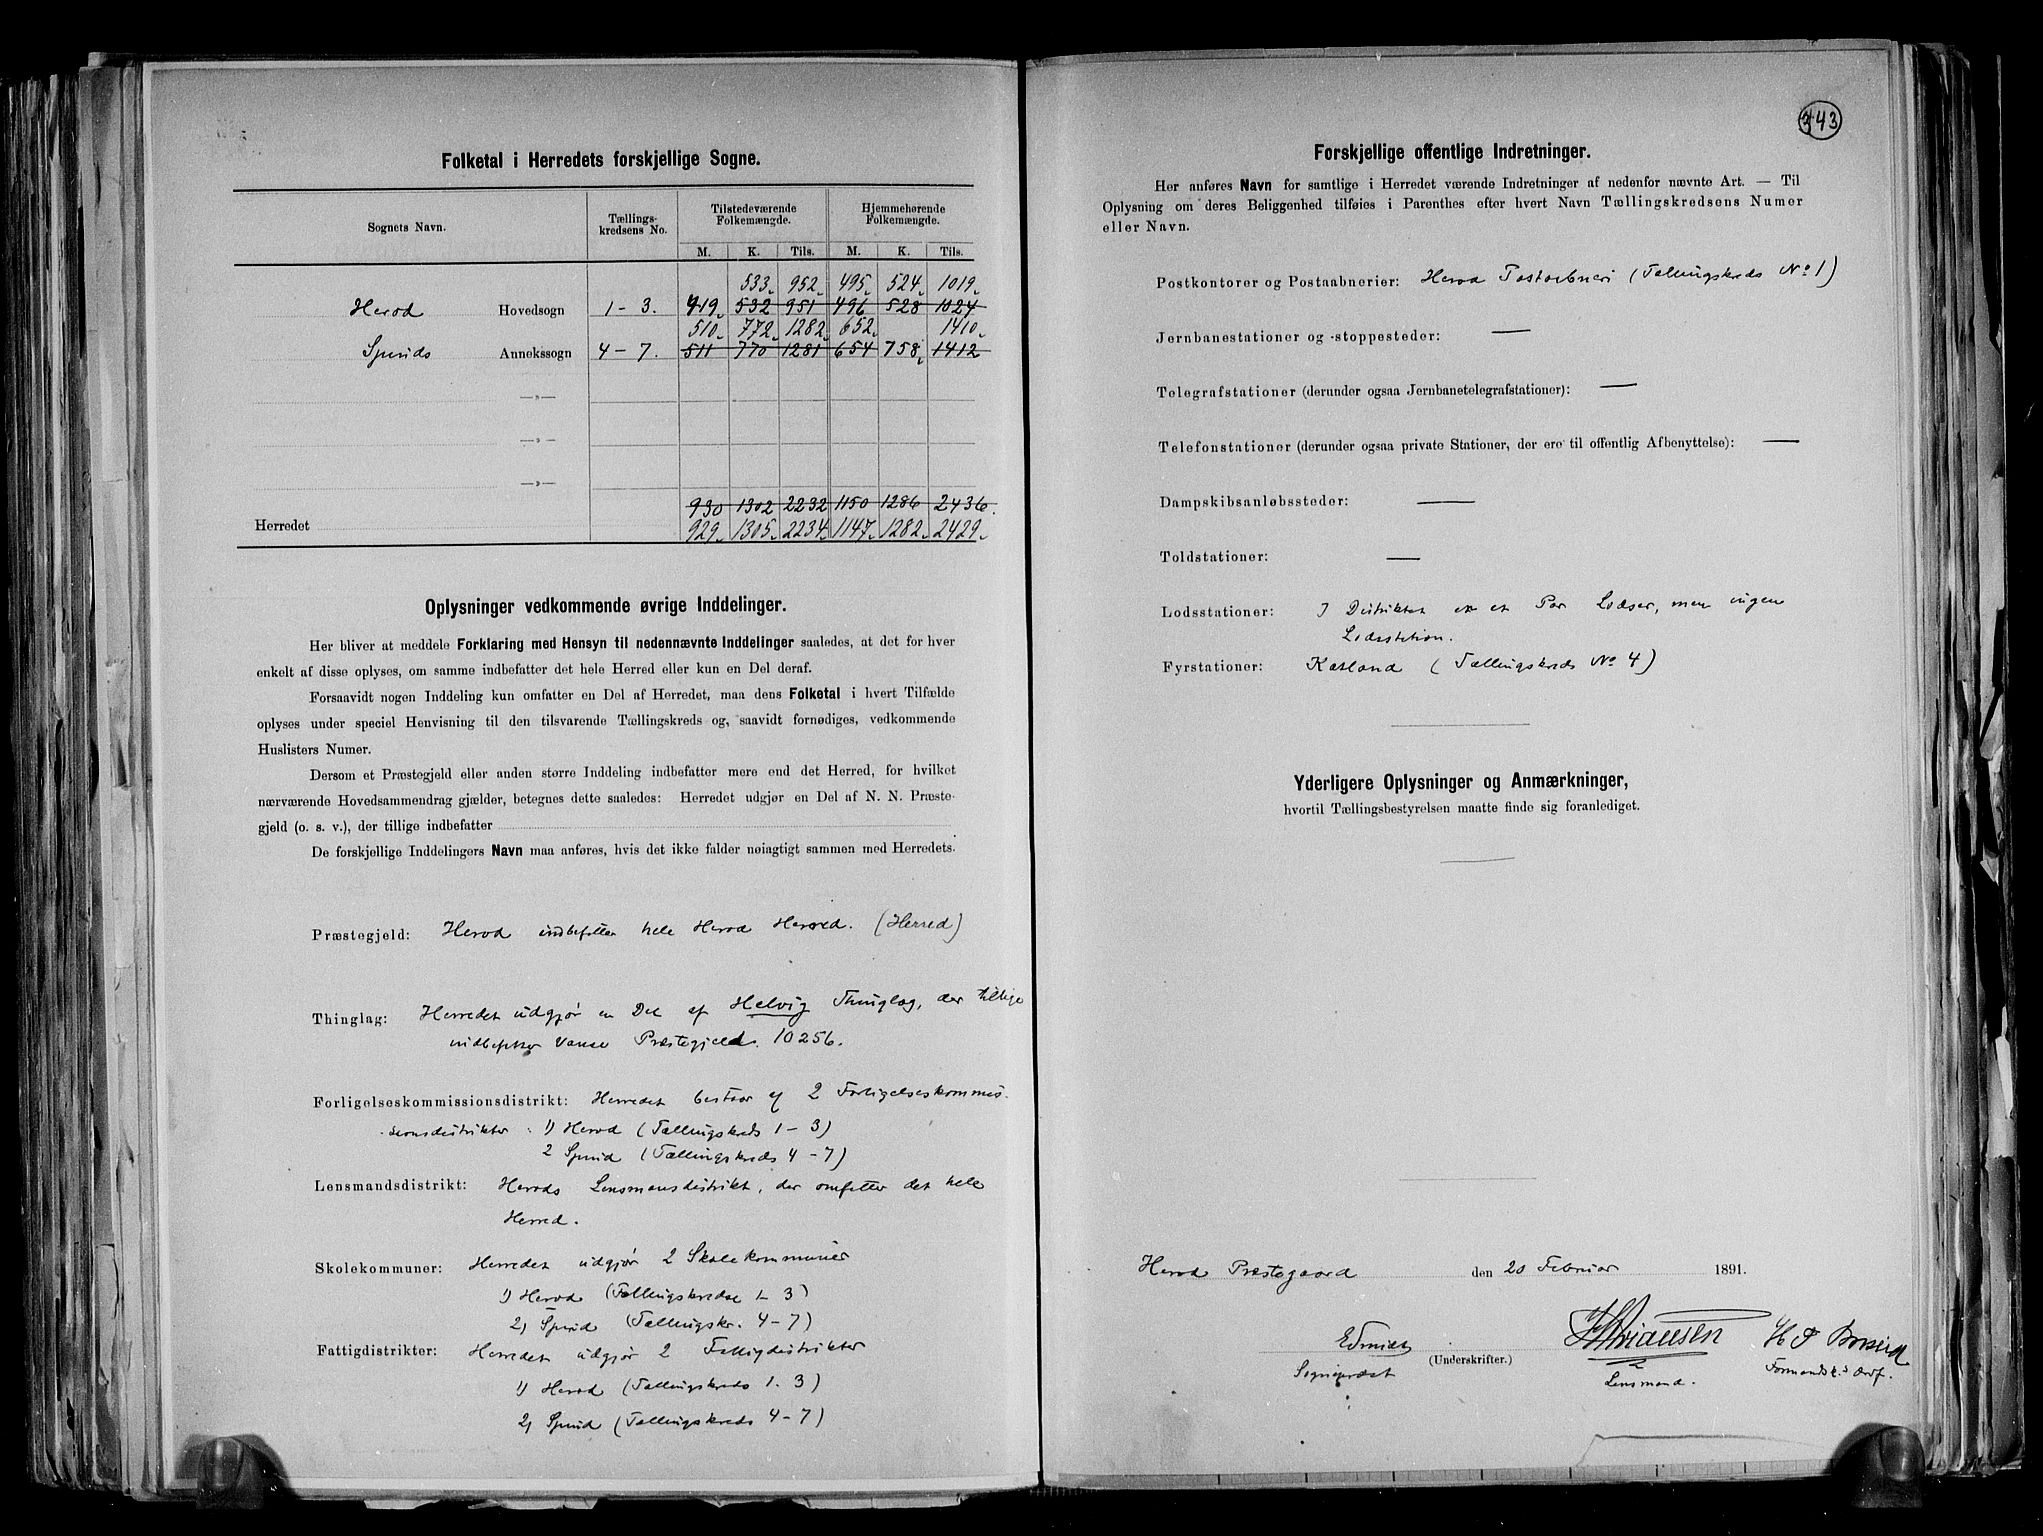 Folketal i Herredets forskjellige Sogne.
Sognets Navn. Tællings-kredsens No. Tilstedeværende Folkemængde. Hjemmehørende Folkemængde.
M. K. Tils. M. K. Tils.
533 952 495 524 1019
Herod Hovedsogn 1-3. 419 532 951 496 528 1024
510 772 1282 652 1410
Spinds Annekssogn 4-7. 511 770 1281 654 758 1412
—„—
—„—
—„—
930 1302 2232 1150 1286 2436.
Herredet 929 1305 2234 1147 1282 2429
Oplysninger vedkommende øvrige Inddelinger.
Her bliver at meddele Forklaring med Hensyn til nedennævnte Inddelinger saaledes, at det for hver
enkelt af disse oplyses, om samme indbefatter det hele Herred eller kun en Del deraf.
Forsaavidt nogen Inddeling kun omfatter en Del af Herredet, maa dens Folketal i hvert Tilfælde
oplyses under speciel Henvisning til den tilsvarende Tællingskreds og, saavidt fornødiges, vedkommende
Huslisters Numer.
Dersom et Præstegjeld eller anden større Inddeling indbefatter mere end det Herred, for hvilket
nærværende Hovedsammendrag gjælder, betegnes dette saaledes: Herredet udgjør en Del af N. N. Præste-
gjeld (o. s. v.), der tillige indbefatter
De forskjellige Inddelingers Navn maa anføres, hvis det ikke falder nøiagtigt sammen med Herredets.
Præstegjeld: Herod indbefatter hele Herod Herred. (Herred)
Thinglag: Herredet udgjør en Del af Helvig Thinglag, der tillige
indbefatter Vanse Præstegjeld. 10256.
Forligelseskommissionsdistrikt: Herredet bestaar af 2 Forligelseskommis-
sionsdistrikter 1) Herod (Tællingskreds 1-3)
2 Spind (Tællingskreds 4-7)
Lensmandsdistrikt: Herods Lensmansdistrikt, der omfatter det hele
Herred.
Skolekommuner: Herredet udgjør 2 Skolekommuner
1) Herod (Tællingskredse 1-3)
2) Spind (Tællingskr. 4-7)
Fattigdistrikter: Herredet udgjør 2 Fattigdistrikter
1) Herod (Tællingskreds 1-3)
2) Spind (Tællingskreds 4-7)
343
Forskjellige offentlige Indretninger.
Her anføres Navn for samtlige i Herredet værende Indretninger af nedenfor nævnte Art. — Til
Oplysning om deres Beliggenhed tilføies i Parenthes efter hvert Navn Tællingskredsens Numer
eller Navn.
Postkontorer og Postaabnerier: Herod Postaabneri (Tællingskreds No 1)
Jernbanestationer og -stoppesteder: —
Telegrafstationer (derunder ogsaa Jernbanetelegrafstationer): —
Telefonstationer (derunder ogsaa private Stationer, der ere til offentlig Afbenyttelse): —
Dampskibsanløbssteder: —
Toldstationer: —
Lodsstationer: I Distriktet er et Par Lodser, men ingen
Lodsstation.
Fyrstationer: Katland (Tællingskreds No 4)
Yderligere Oplysninger og Anmærkninger,
hvortil Tællingsbestyrelsen maatte finde sig foranlediget.
Herod Præstegaard den 20 Februar 1891.
(Underskrifter.)
Sogneprest
Lensmand.